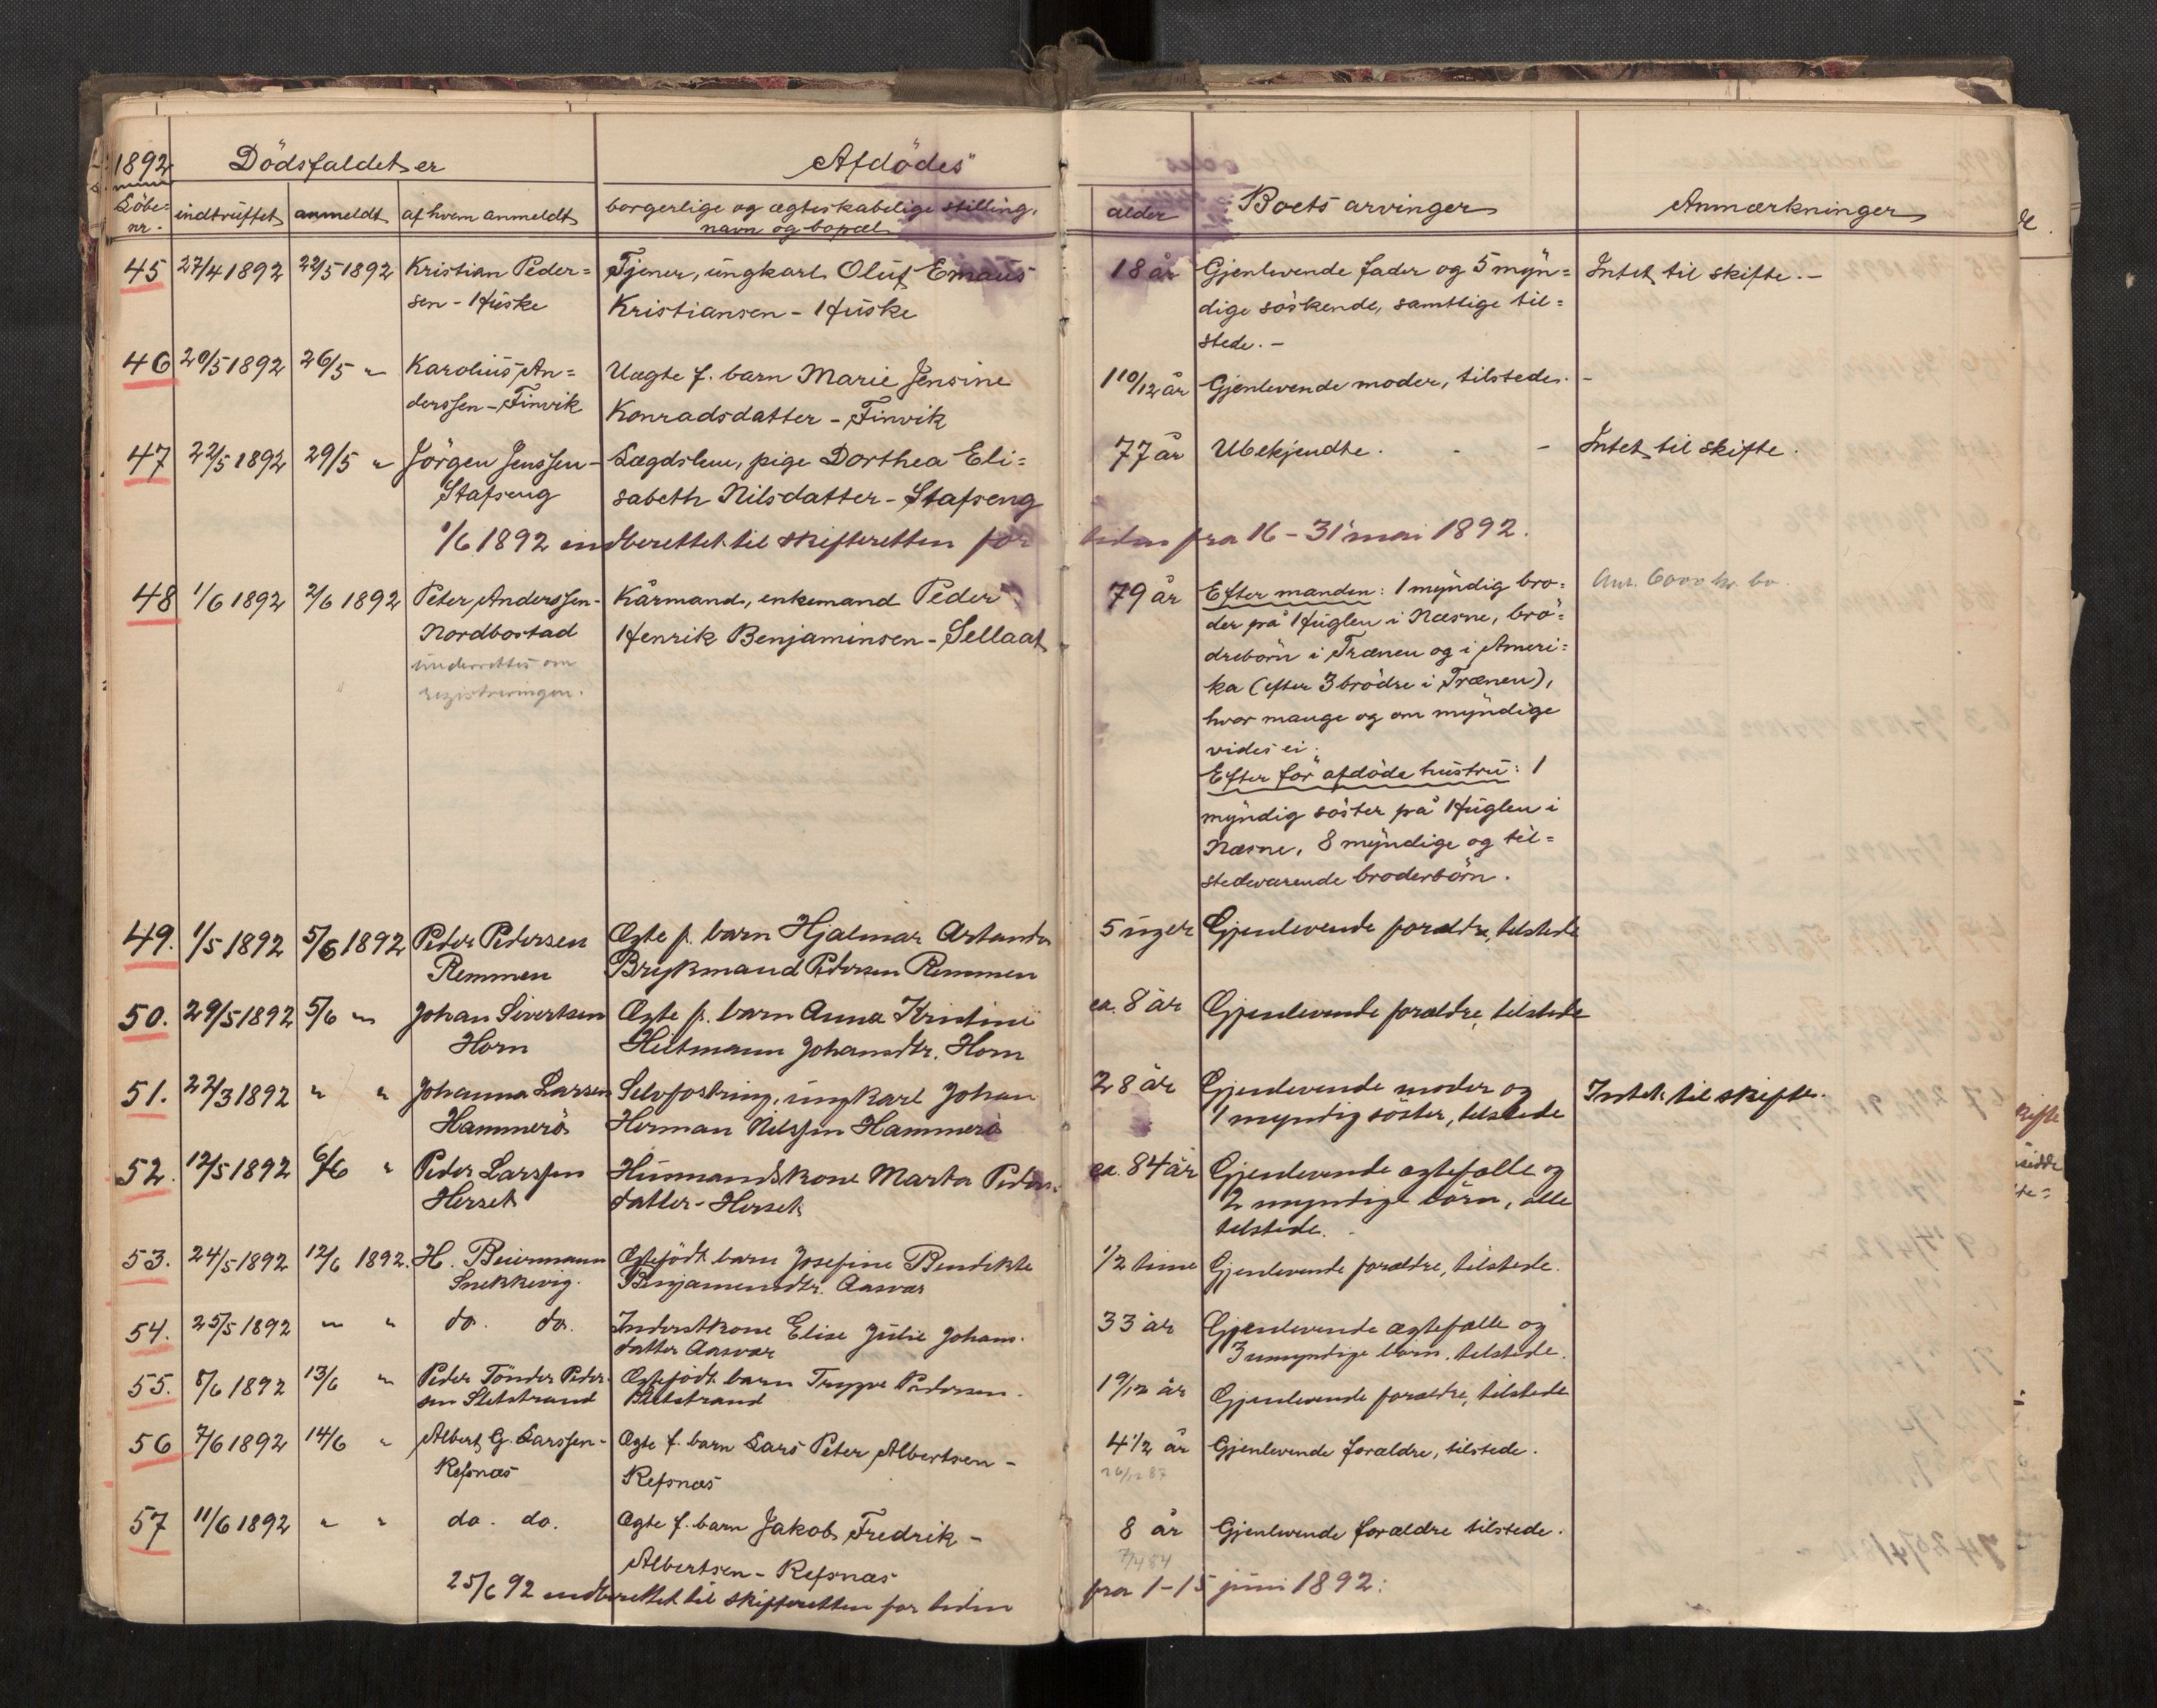 1892
Dödsfaldet er
Afdödes
Löbe=
nr.
indtruffet
anmeldt
af hvem anmeldt
borgerlige og ægteskabelige stilling,
navn og bopæl
alder
Boets arvinger
Anmærkninger
45 27/4 1892 22/5 1892 Kristian Peder= Tjener, ungkarl Oluf Emaus 18 år Gjenlevende fader og 5 myn= Intet til skifte. -
sen - Huske Kristiansen - Huske dige söskende, samtlige til=
stede. -
46 20/5 1892 26/5 " Karolius An= Uægte f. barn Marie Jensine 1 10/12 år Gjenlevende moder, tilstede. -
derssen - Finvik Konradsdatter - Finvik
47 22/5 1892 29/5 " Jörgen Jenssen - Lægdslem, pige Dorthea Eli= 77 år Ubekjendte. - - Intet til skifte.
Stafseng sabeth Nilsdatter - Stafseng
1/6 1892 indberettet til skifteretten for tiden fra 16 - 31 mai 1892.
48 1/6 1892 2/6 1892 Peter Anderssen - Kårmand, enkemand Peder 79 år Efter manden: 1 myndig bro= Ant. 6000 kr. bo.
Nordbostad Henrik Benjaminsen - Sellaat der på Huglen i Næsne, brö=
underrettes om drebörn i Trænen og i Ameri=
registreringen. ka (efter 3 brödre i Trænen),
hvor mange og om myndige
vides ei.
Efter för afdöde hustru: 1
myndig söster på Huglen i
Næsne, 8 myndige og til=
stedeværende broderbörn.
49. 1/5 1892 5/6 1892 Peder Pedersen Ægte f. barn Hjalmar 5 uger Gjenlevende forældre, tilstede
Remmen Brykmand Pedersen Remmen
50. 29/5 1892 5/6 " Johan Sivertsen Ægte f. barn Anna Kristine ca. 8 år Gjenlevende forældre, tilstede
Horn Heltmann Johansdtr. Horn
51. 22/3 1892 " " Johanna Larsen Selvfostring, ungkarl Johan 28 år Gjenlevende moder og Intet til skifte.
Hammerö Herman Nilssen Hammerö 1 myndig söster, tilstede
52. 12/5 1892 6/6 " Peder Larssen Husmandskone Marta Peders= ca. 84 år Gjenlevende ægtefælle og
Herset datter - Herset 2 myndige börn, alle
tilstede.
53. 24/5 1892 12/6 1892. H. Beiermann Ægtefödt barn Josefine Bendikte 1/2 time Gjenlevende forældre, tilstede.
Snekkevig. Benjaminsdtr. Aasvær
54. 25/5 1892 " " do. do. Inderstkone Elise Julie Johans- 33 år Gjenlevende ægtefælle og
datter Aasvær 3 umyndige börn, tilstede.
55. 8/6 1892 13/6 " Peder Tönder Peder- Ægtefödt barn Trygve Pedersen. 1 9/12 år Gjenlevende forældre, tilstede
sen Sletstrand Sletstrand
56 7/6 1892 14/6 " Albert G. Larssen - Ægte f. barn Lars Peter Albertsen - 4 1/2 år Gjenlevende forældre, tilstede.
Refsnæs Refsnæs 26/12 87
57 11/6 1892 " " do. do. Ægte f. barn Jakob Fredrik - 8 år Gjenlevende forældre tilstede.
Albertsen - Refsnæs 7/4 84
25/6 92 indberettet til skifteretten for tiden fra 1 - 15 juni 1892.